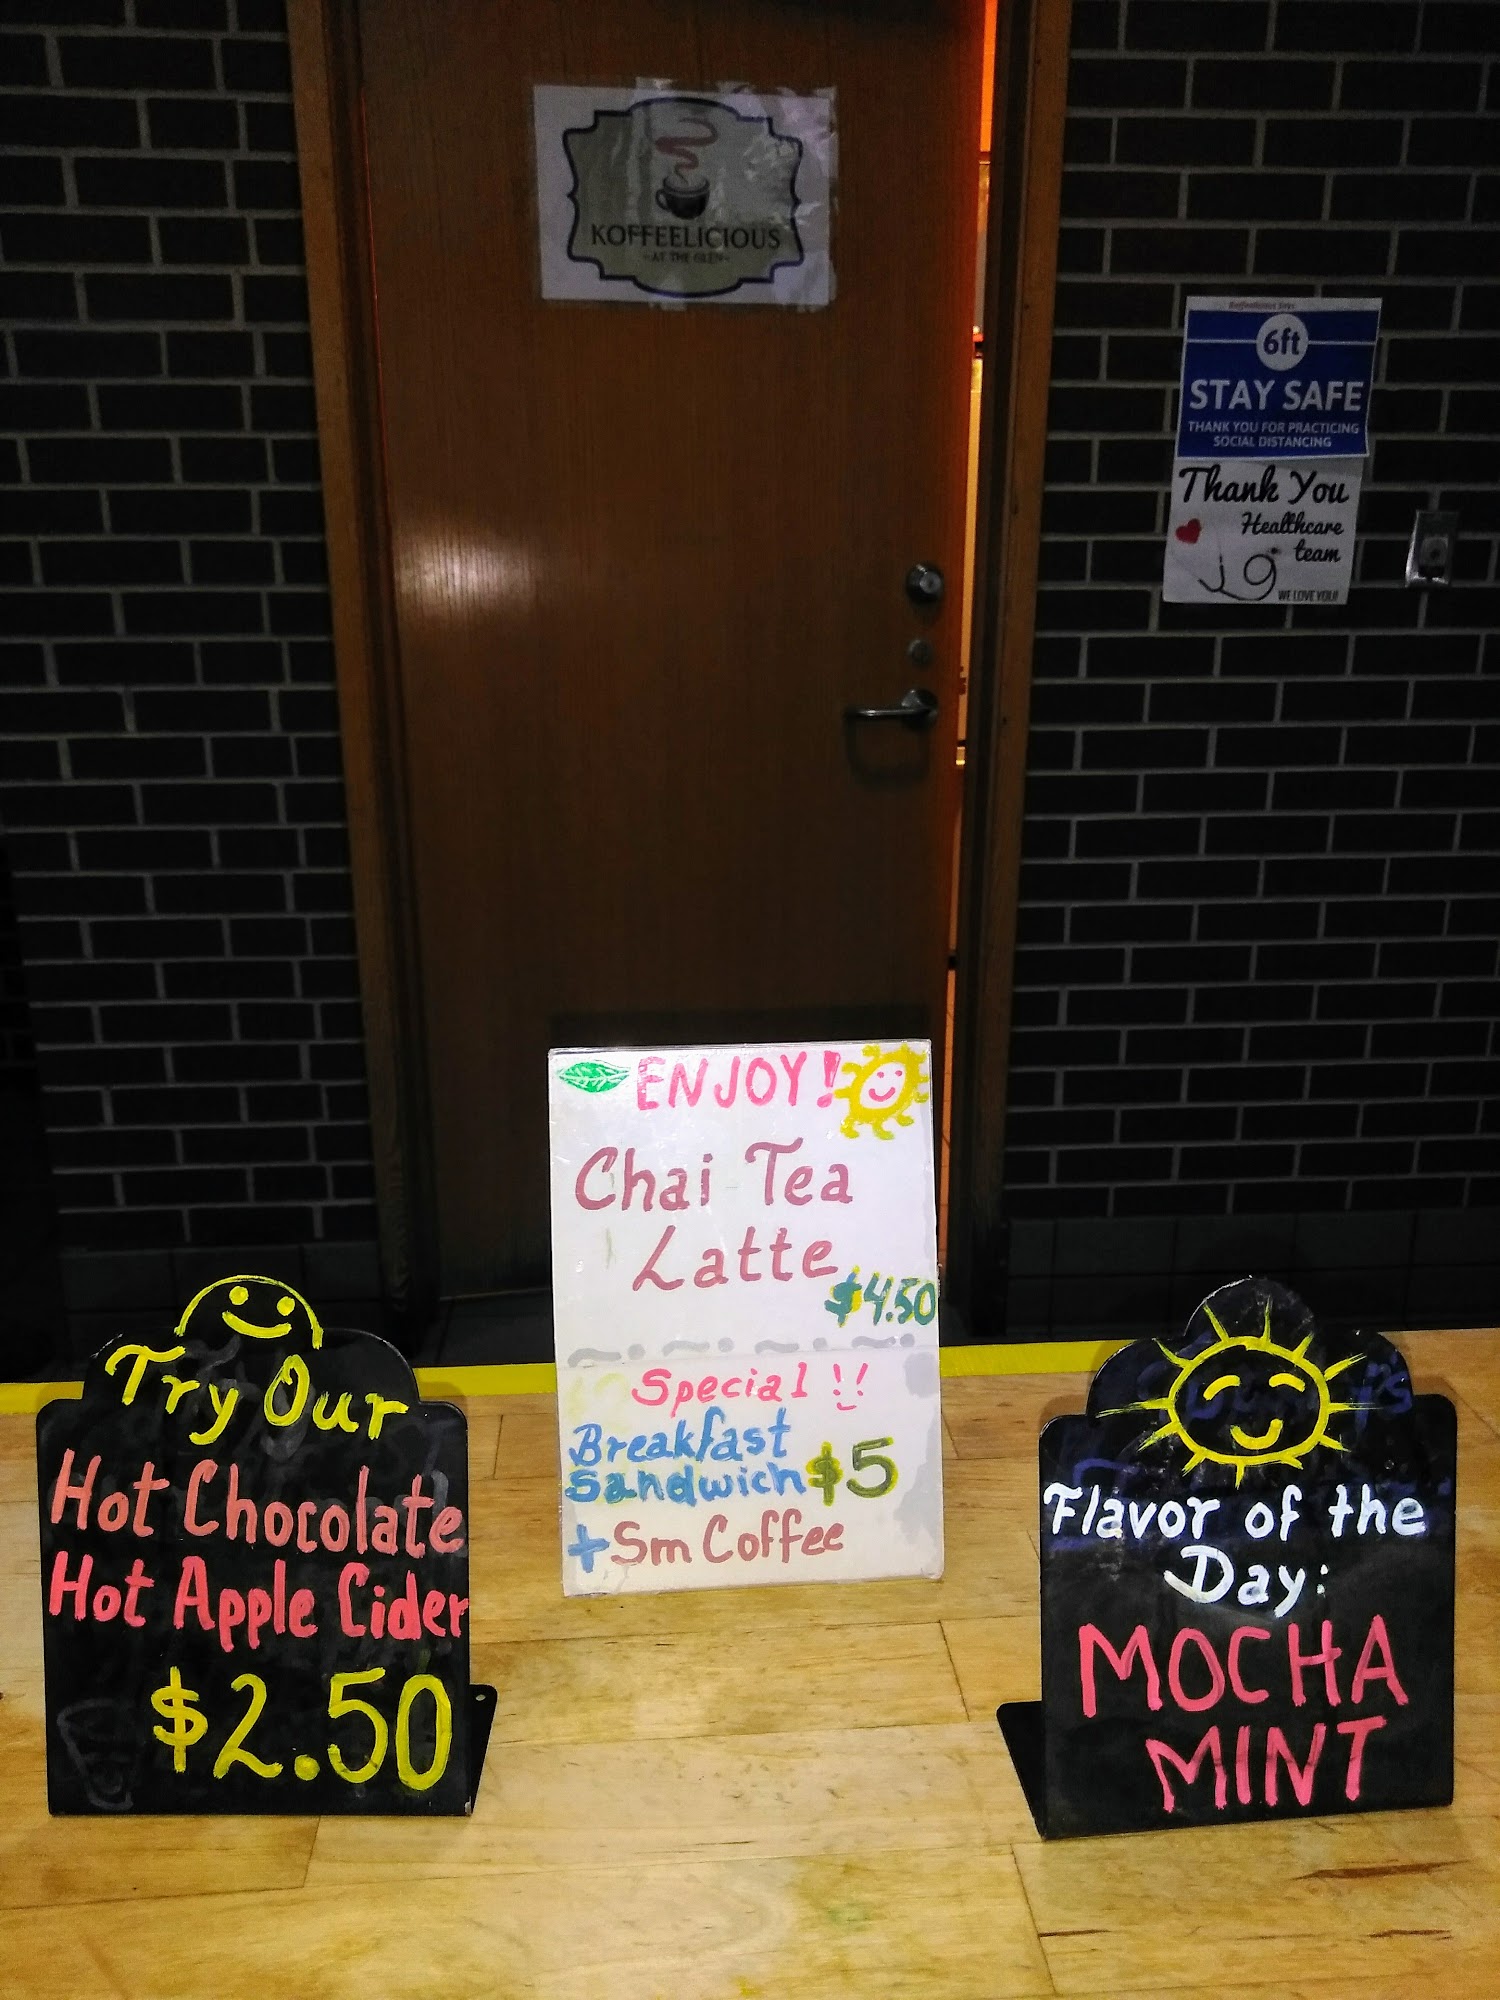 KOFFEELICIOUS
~AT THE GLEN~
6ft
STAY SAFE
THANK YOU FOR PRACTICING
SOCIAL DISTANCING
Thank You
Healthcare
team
WE LOVE YOU!
ENJOY!
Chai Tea
Latte
$4.50
Special!!
Breakfast
Sandwich $5
+ Sm Coffee
Try Our
Hot Chocolate
Hot Apple Cider
$2.50
Flavor of the
Day:
MOCHA
MINT